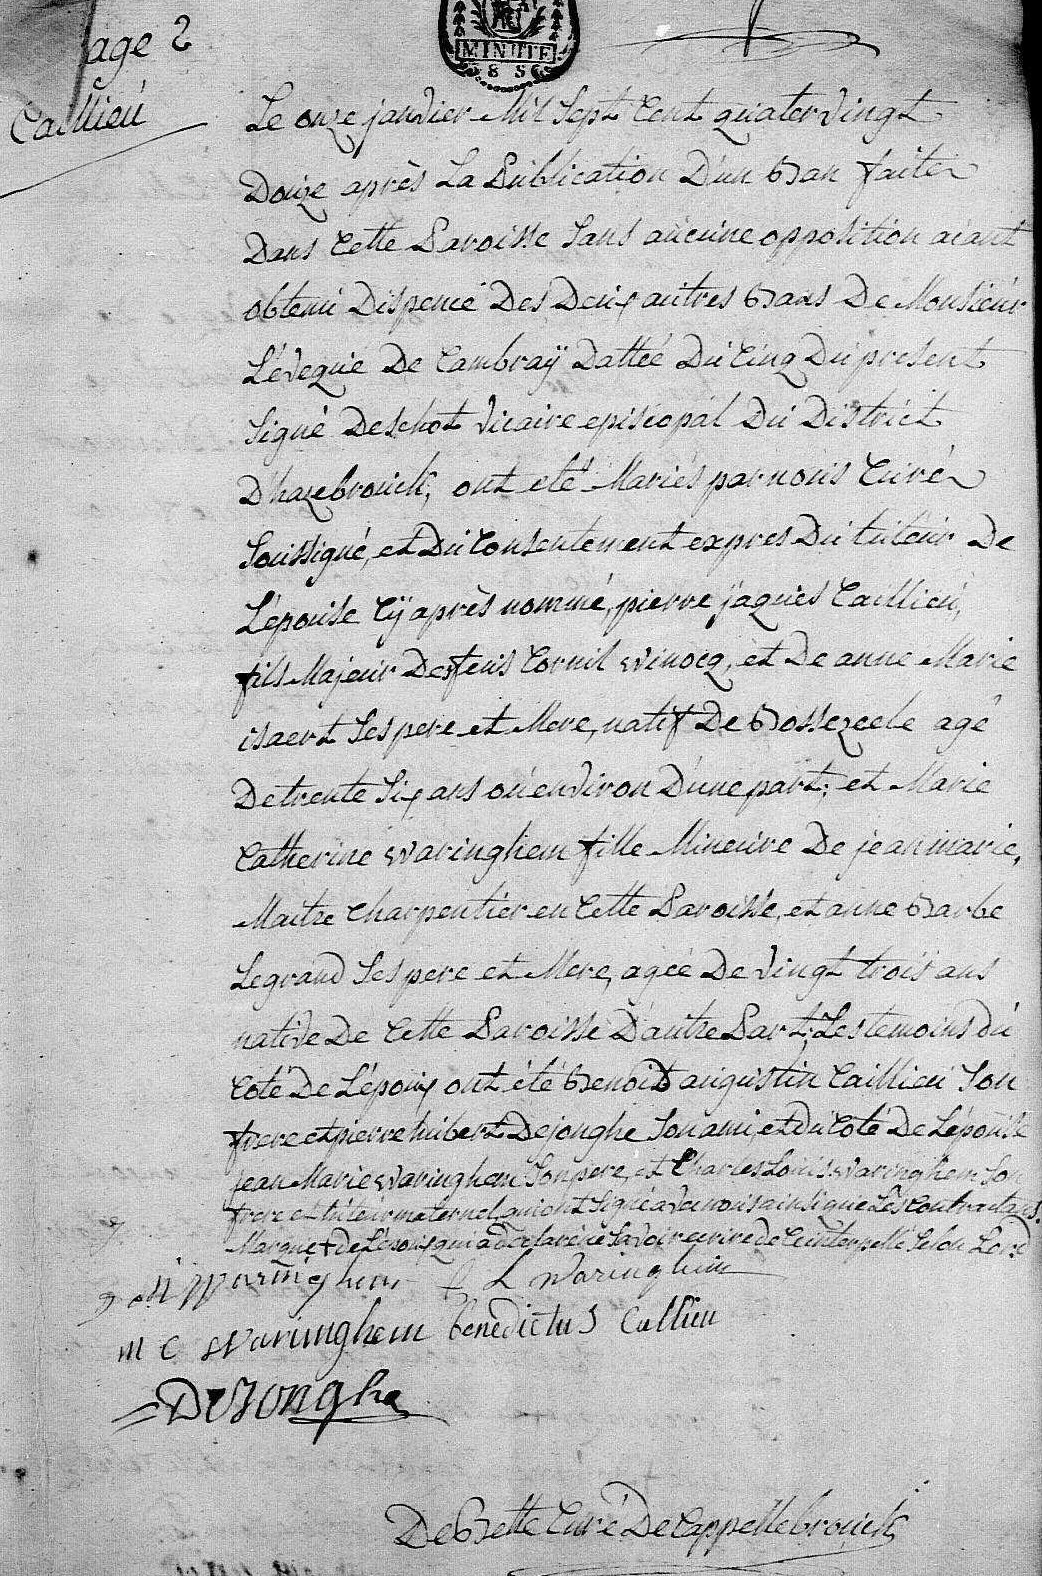 age 2
MINUTE
8 S
Caillieu
Le onze janvier Mil Sept Cent quatervingt
Douze après La Publication D'un Ban faite
Dans Cette Paroisse Sans aucune opposition aiant
obtenu Dispence Des Deux autres Bans De Monsieur
L'éveque De Cambraÿ Dattée Du Cinq Du present
Signé Deschodt vicaire episcopal Du District
D'hazebrouck, ont eté Mariés par nous Curé
Soussigné, et Du Consentement expres Du tuteur De
L'épouse Cÿ après nommé, pierre jaques Caillieu,
fils Majeur Des feus Cornil Winocq, et De anne Marie
isaert Ses pere et Mere, natif De Bossezeele agé
De trente Six ans ou environ D'une part; et Marie
Catherine Waringhem fille Mineure De jean marie,
Maitre Charpentier en Cette Paroisse, et anne Barbe
Legrand Ses pere et Mere, agée De vingt trois ans
native De Cette Paroisse D'autre Part, Les temoins du
Coté De L'époux ont été Benoit augustin Caillieu Son
frere et pierre hubert Dejonghe Son ami, et du Coté De L'épouse
jean Marie Waringhem Son pere, et Charles Louis Waringhem Son
frere et tuteur maternel qui ont Signé avec nous ainsi que Les Contractans.
Marque + de L'époux qui a Declaré ne Savoir ecrire de Ce interpellé Selon L'ord
Waringhem C L Waringhem
M C Waringhem benedictus Callieu
DeJonghe
De Bette Curé De Cappellebrouck